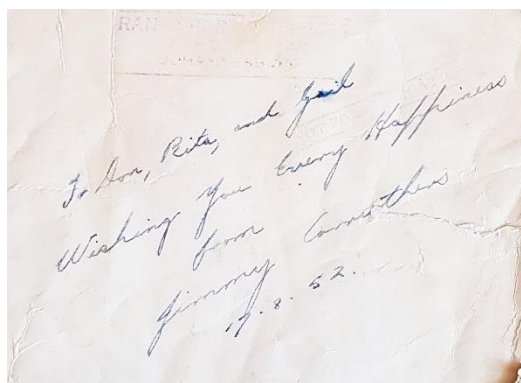 RAN
To Don, Rita, and Gail
Wishing You Every Happiness
from
Jimmy Carruthers
17.8.52.